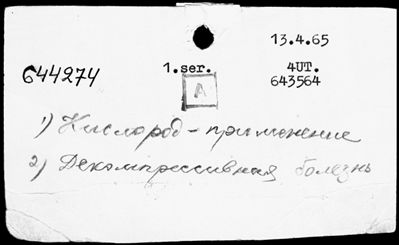 13.4.65
644274 1.ser. 4UT.
643564
A
1) Кислород - применение
2) Декомпрессивная болезнь